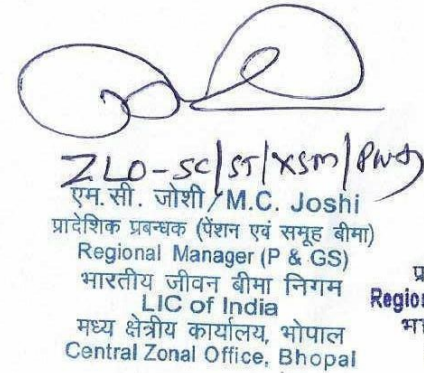 ZLO-SC/ST/XSM/PWD
एम.सी. जोशी / M.C. Joshi
प्रादेशिक प्रबन्धक (पेंशन एवं समूह बीमा)
Regional Manager (P & GS)
भारतीय जीवन बीमा निगम
LIC of India
मध्य क्षेत्रीय कार्यालय, भोपाल
Central Zonal Office, Bhopal
प्र
Region
भा